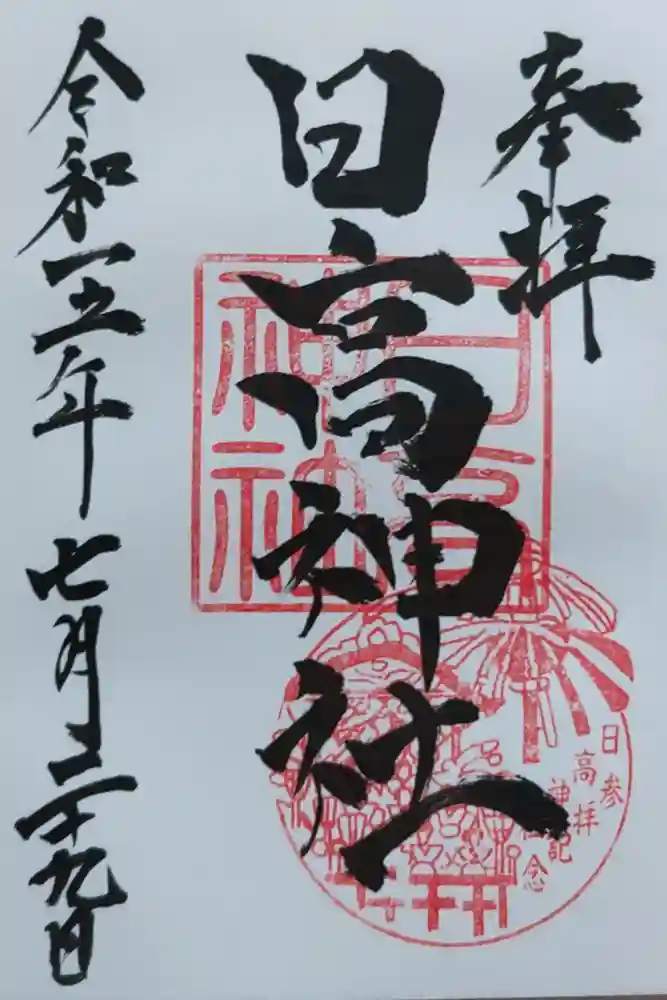 奉拝
日高神社
令和五年七月二十九日
日高神社
日高神社
参拝記念